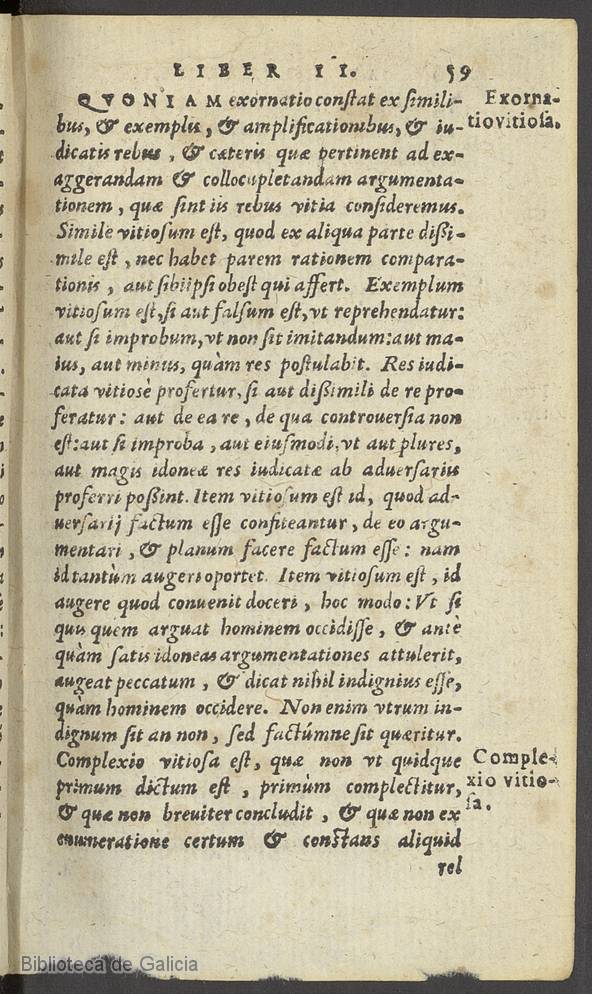 LIBER II. 59
QVONIAM exornatio constat ex simili-
Exorna-
bus, & exemplis, & amplificationibus, & iu-
tio vitiosa.
dicatis rebus, & cæteris quæ pertinent ad ex-
aggerandam & collocupletandam argumenta-
tionem, quæ sint iis rebus vitia consideremus.
Simile vitiosum est, quod ex aliqua parte dißi-
mile est, nec habet parem rationem compara-
tionis, aut sibiipsi obest qui affert. Exemplum
vitiosum est, si aut falsum est, vt reprehendatur:
aut si improbum, vt non sit imitandum: aut ma-
ius, aut minus, quàm res postulabit. Res iudi-
cata vitiosè profertur, si aut dißimili de re pro-
feratur: aut de ea re, de qua controuersia non
est: aut si improba, aut eiusmodi, vt aut plures,
aut magis idoneæ res iudicatæ ab aduersariis
proferri poßint. Item vitiosum est id, quod ad-
uersarij factum esse confiteantur, de eo argu-
mentari, & planum facere factum esse: nam
id tantùm augeri oportet. Item vitiosum est, id
augere quod conuenit doceri, hoc modo: Vt si
quis quem arguat hominem occidisse, & antè
quàm satis idoneas argumentationes attulerit,
augeat peccatum, & dicat nihil indignius esse,
quàm hominem occidere. Non enim vtrum in-
dignum sit an non, sed factúmne sit quæritur.
Complexio vitiosa est, quæ non vt quidque
Comple-
primum dictum est, primùm complectitur,
xio vitio-
& quæ non breuiter concludit, & quæ non ex
sa.
enumeratione certum & constans aliquid
rel
Biblioteca de Galicia